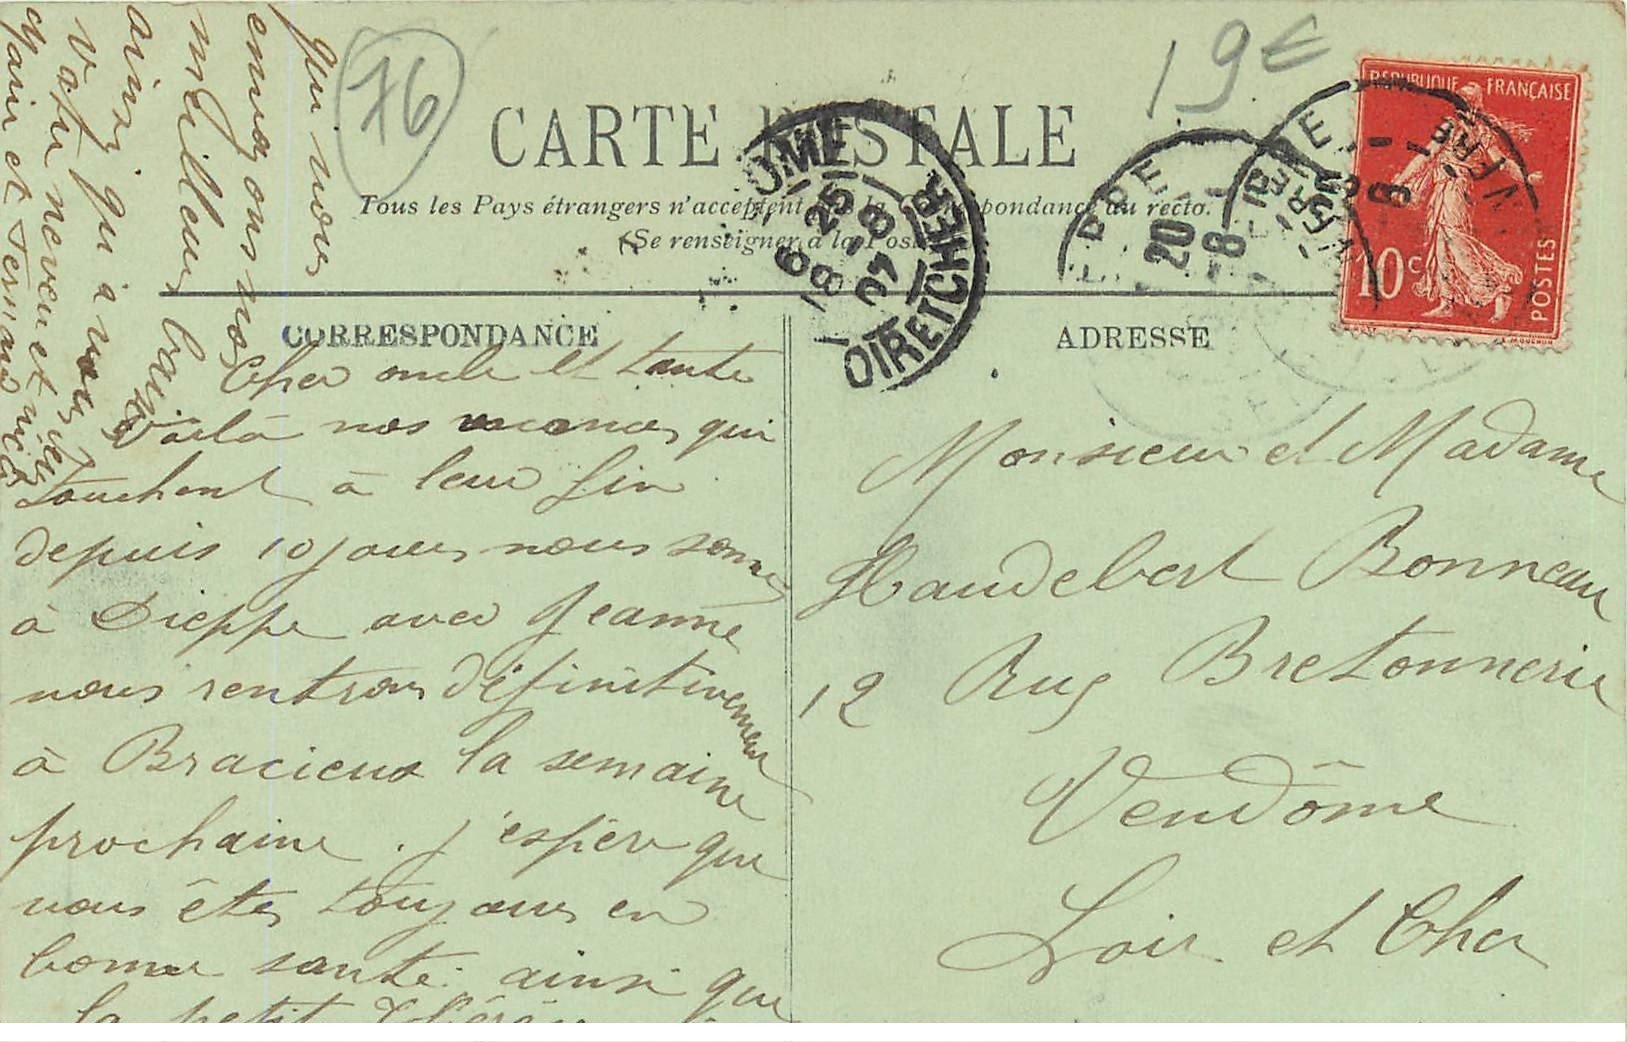 76
19€
CARTE POSTALE
Tous les Pays étrangers n'acceptent pas la correspondance au recto.
(Se renseigner à la Poste)
CORRESPONDANCE
ADRESSE
REPUBLIQUE FRANÇAISE
10c
POSTES
20 8
6 25
18 8 07
LOIR ET CHER
Cher oncle et tante
Voilà nos vacances qui
touchent à leur fin
depuis 10 jours nous sommes
à Dieppe avec Jeanne
nous rentrons définitivement
à Bracieux la semaine
prochaine. j'espère que
vous êtes toujours en
bonne santé ainsi que
la petit
qui nous
envoyons nos
meilleurs baisers
ainsi qu'à vous
Votre neveu et nièce
Monsieur et Madame
Haudebert Bonneau
12 Rue Bretonnerie
Vendôme
Loir et Cher